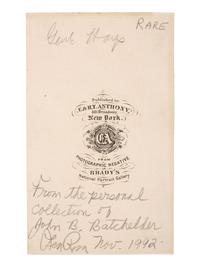 RARE
Genl Hays
Published by
E. & H.T. ANTHONY,
501 Broadway,
New York.
EA
FROM
PHOTOGRAPHIC NEGATIVE
IN
BRADY'S
National Portrait Gallery
From the personal
collection of
John B. Batchelder
Nov. 1992-